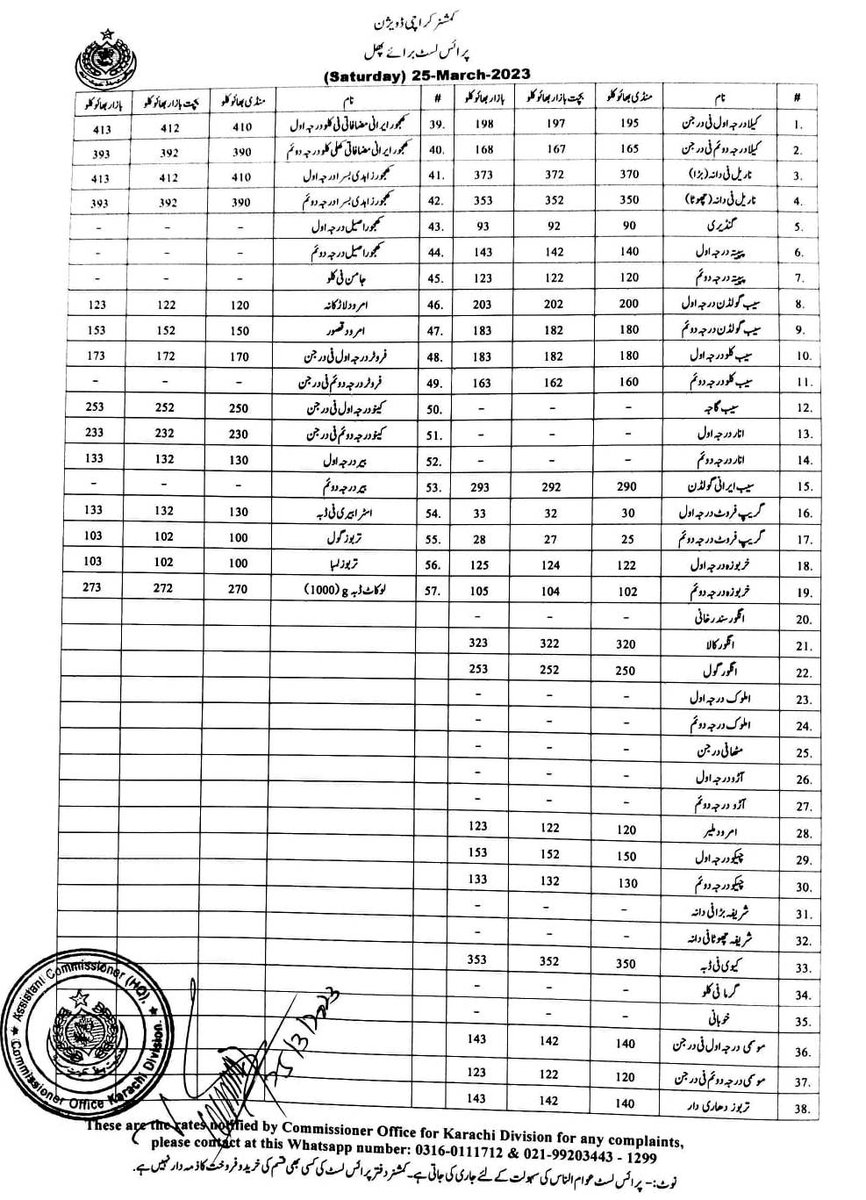 کمشنر کراچی ڈویژن
پرائس لسٹ برائے پھل
(Saturday) 25-March-2023
# نام منڈی بھائو کلو بچت بازار بھائو کلو بازار بھائو کلو # نام منڈی بھائو کلو بچت بازار بھائو کلو بازار بھائو کلو
1. کیلا درجہ اول فی درجن 195 197 198 39. کھجور ایرانی مضافاتی فی کلو درجہ اول 410 412 413
2. کیلا درجہ دوئم فی درجن 165 167 168 40. کھجور ایرانی مضافاتی کھلی کلو درجہ دوئم 390 392 393
3. ناریل فی دانہ (بڑا) 370 372 373 41. کھجور زاہدی بسرا درجہ اول 410 412 413
4. ناریل فی دانہ (چھوٹا) 350 352 353 42. کھجور زاہدی بسرا درجہ دوئم 390 392 393
5. گنڈیری 90 92 93 43. کھجور اصیل درجہ اول - - -
6. پپیتہ درجہ اول 140 142 143 44. کھجور اصیل درجہ دوئم - - -
7. پپیتہ درجہ دوئم 120 122 123 45. جامن فی کلو - - -
8. سیب گولڈن درجہ اول 200 202 203 46. امرود لاڑکانہ 120 122 123
9. سیب گولڈن درجہ دوئم 180 182 183 47. امرود قصور 150 152 153
10. سیب کلو درجہ اول 180 182 183 48. فروٹر درجہ اول فی درجن 170 172 173
11. سیب کلو درجہ دوئم 160 162 163 49. فروٹر درجہ دوئم فی درجن - - -
12. سیب گاجہ - - - 50. کینو درجہ اول فی درجن 250 252 253
13. انار درجہ اول - - - 51. کینو درجہ دوئم فی درجن 230 232 233
14. انار درجہ دوئم - - - 52. بیر درجہ اول 130 132 133
15. سیب ایرانی گولڈن 290 292 293 53. بیر درجہ دوئم - - -
16. گریپ فروٹ درجہ اول 30 32 33 54. اسٹرابیری فی ڈبہ 130 132 133
17. گریپ فروٹ درجہ دوئم 25 27 28 55. تربوز گول 100 102 103
18. خربوزہ درجہ اول 122 124 125 56. تربوز لمبا 100 102 103
19. خربوزہ درجہ دوئم 102 104 105 57. لوکاٹ ڈبہ g (1000) 270 272 273
20. انگور سندرخانی - - -
21. انگور کالا 320 322 323
22. انگور گول 250 252 253
23. املوک درجہ اول - - -
24. املوک درجہ دوئم - - -
25. مٹھا فی درجن - - -
26. آڑو درجہ اول - - -
27. آڑو درجہ دوئم - - -
28. امرود ملیر 120 122 123
29. چیکو درجہ اول 150 152 153
30. چیکو درجہ دوئم 130 132 133
31. شریفہ بڑا فی دانہ - - -
32. شریفہ چھوٹا فی دانہ - - -
33. کیوی فی ڈبہ 350 352 353
34. گرما فی کلو - - -
35. خوبانی - - -
36. موسمی درجہ اول فی درجن 140 142 143
37. موسمی درجہ دوئم فی درجن 120 122 123
38. تربوز دھاری دار 140 142 143
Assistant Commissioner (HQ).
Commissioner Office Karachi Division.
25/3/2023
These are the rates notified by Commissioner Office for Karachi Division for any complaints,
please contact at this Whatsapp number: 0316-0111712 & 021-99203443 - 1299
نوٹ:- پرائس لسٹ عوام الناس کی سہولت کے لئے جاری کی جاتی ہے۔ کمشنر دفتر پرائس لسٹ کی کسی بھی قسم کی خرید و فروخت کا ذمہ دار نہیں ہے۔